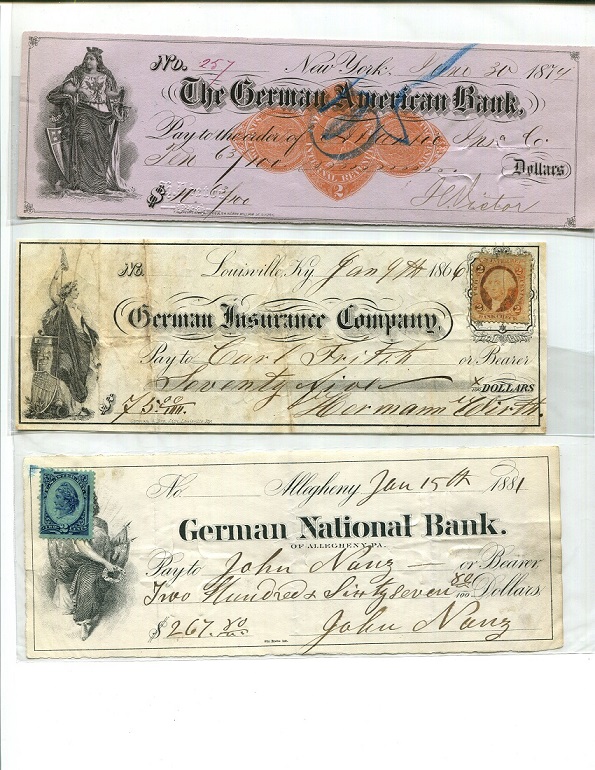 No. 257 New York, June 30 1874
The German American Bank,
Pay to the order of Ins Co.
Ten 63/100 Dollars
$ 10 63/100
H Victor
2
No. Louisville, Ky. Jan 9th 1866
German Insurance Company,
Pay to Carl or Bearer
Seventy five DOLLARS
$ 75.00 Hermann
No. Allegheny Jan 15th 1881
German National Bank.
OF ALLEGHENY, PA.
Pay to John Nanz or Bearer
Two Hundred & Sixty seven 80/100 Dollars,
$ 267.80 John Nanz